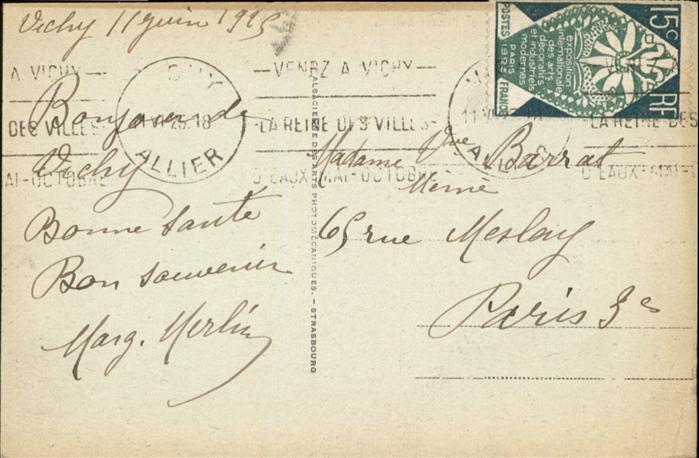 Vichy 11 juin 1925
Bonjour de
Vichy
Bonne Santé
Bon Souvenir
Marg. Merlin
Madame Vve Barrat
65 rue Meslay
Paris 3e
VICHY
ALLIER
A VICHY
DES VILLES-
MAI-OCTOBRE
-VENEZ A VICHY-
-LA REINE DES VILLES-
D'EAUX-MAI-OCTOBRE
LA REINE DES
D'EAUX-MAI-
L'ALSACIENNE DES ARTS PHOTOMÉCANIQUES. - STRASBOURG
15c
RF
POSTES FRANCE
exposition
internationale
des arts
décoratifs
et industriels
modernes
PARIS
1925